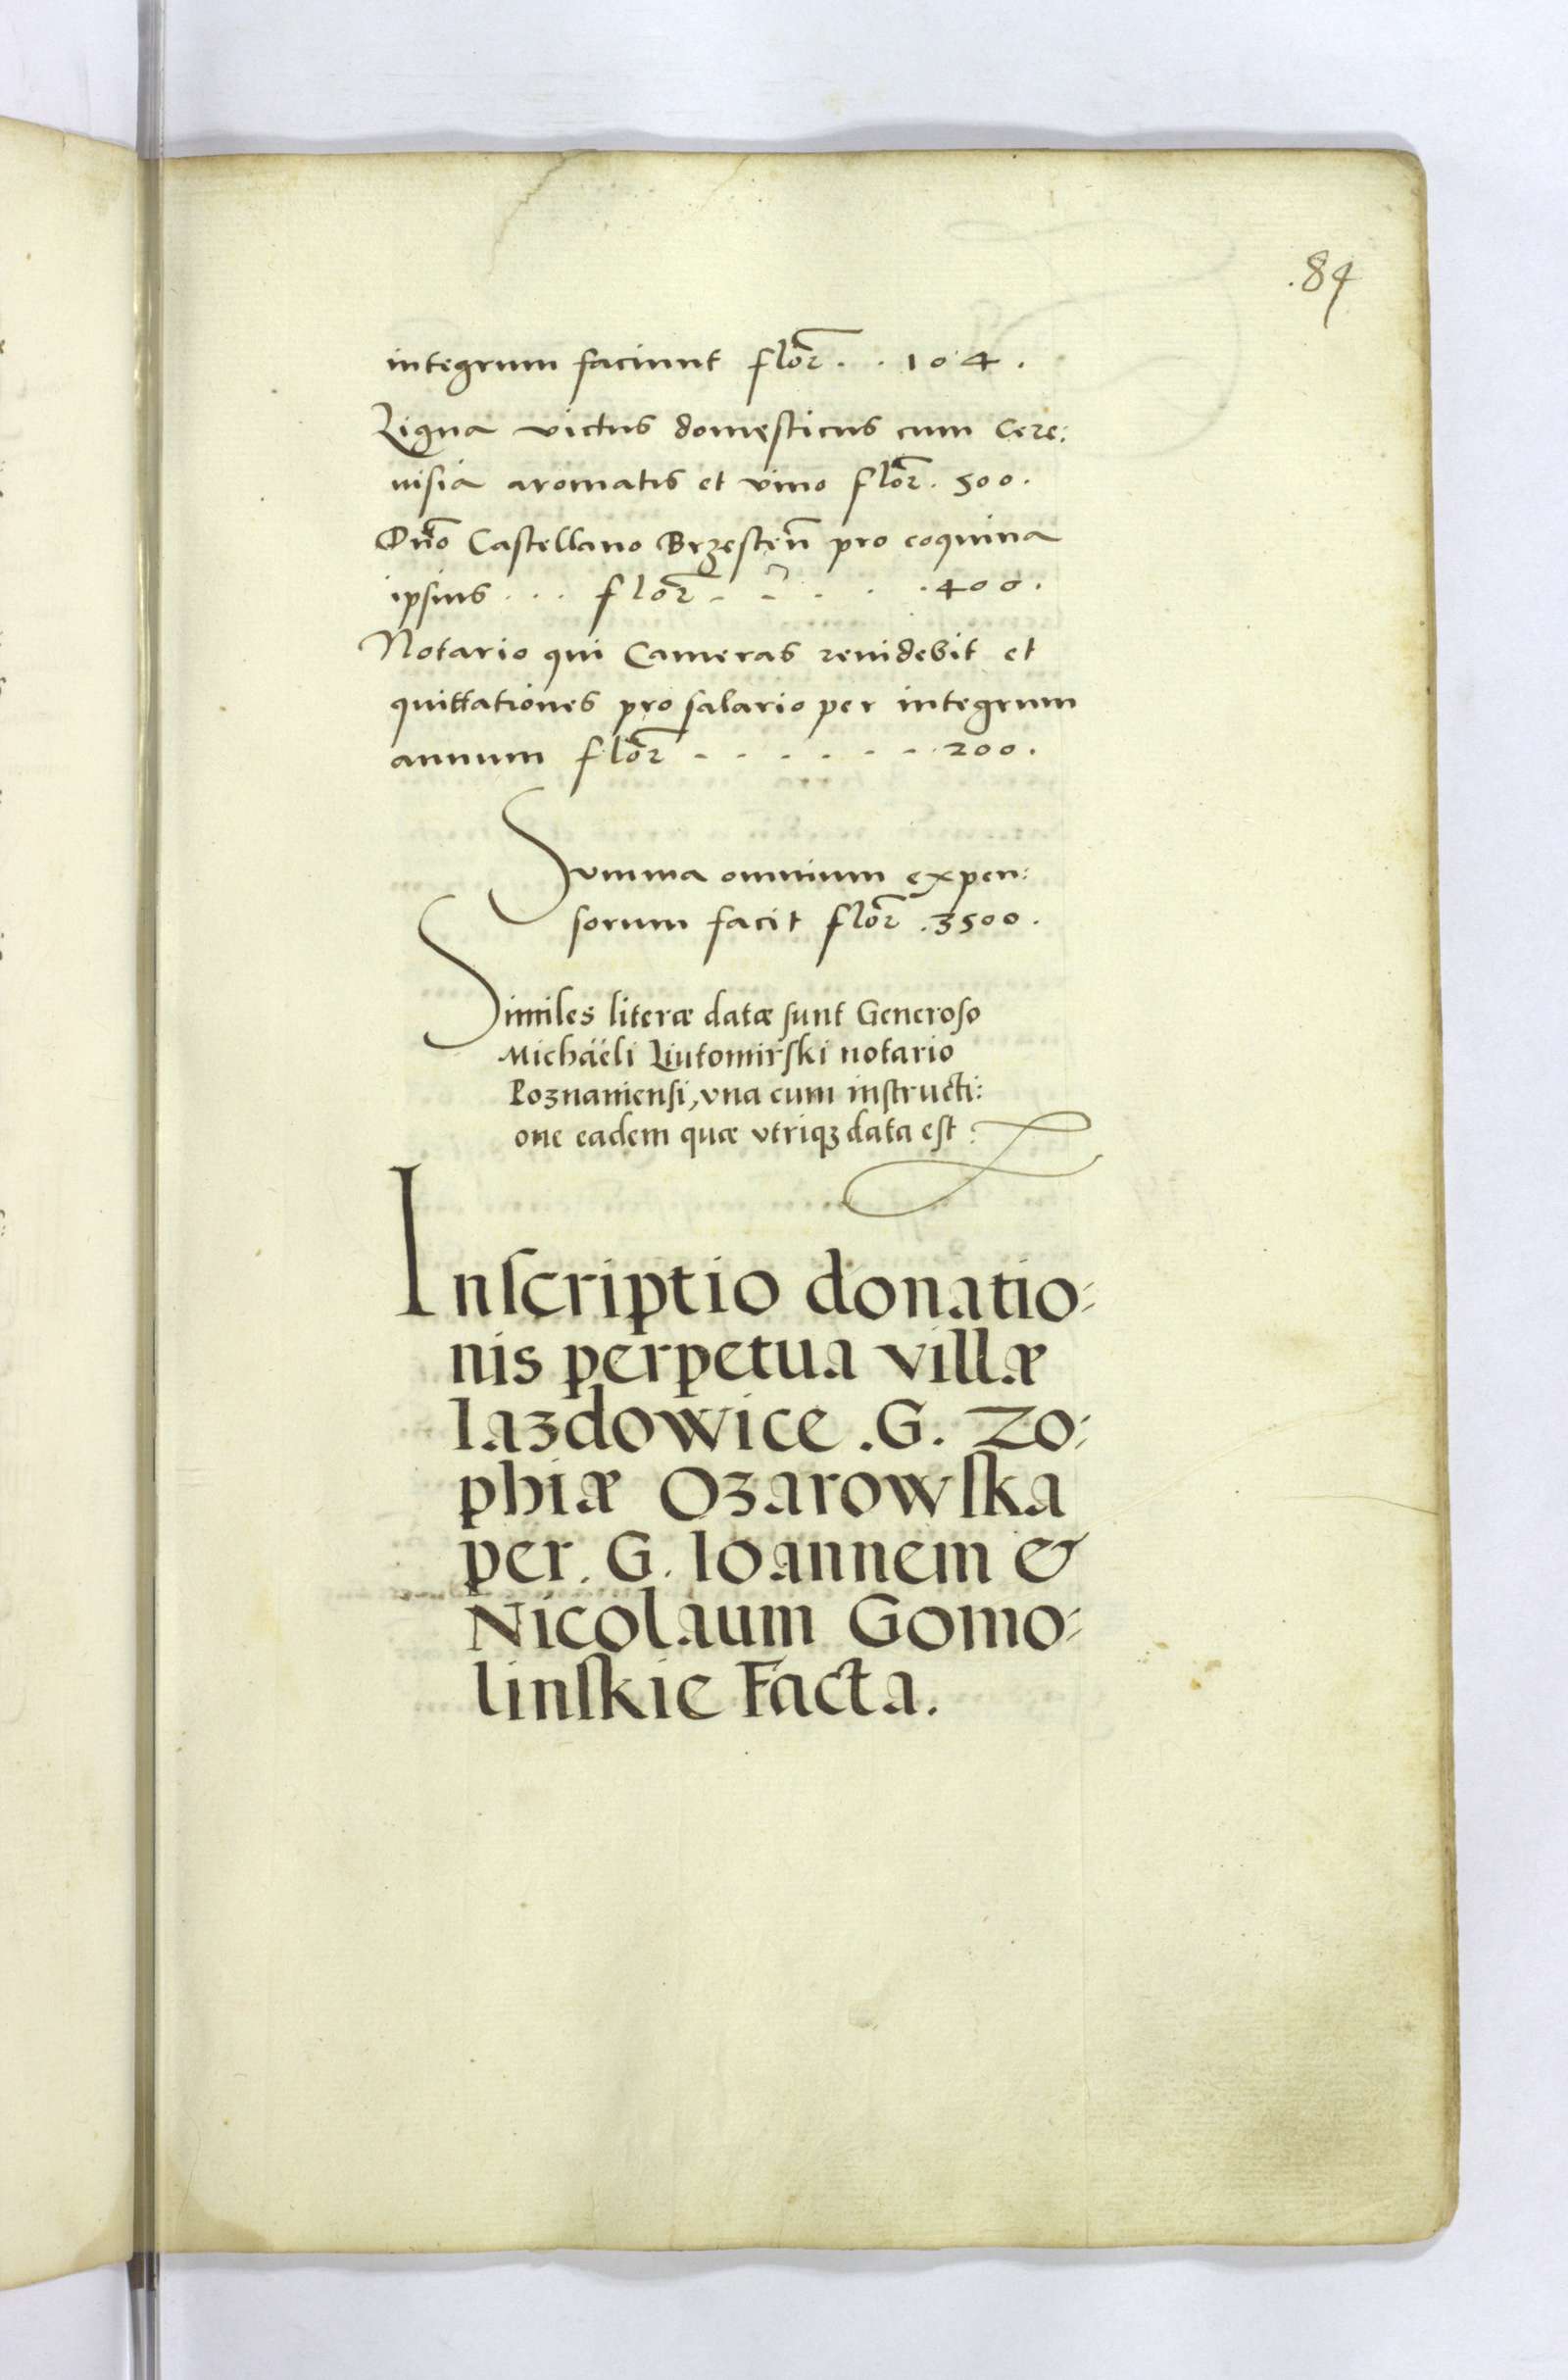 .84
integrum faciunt flor̄. . 104.
Ligna victus domesticus cum Cere:
uisia aromatis et vino flor̄. 500.
Dn̄o Castellano Brzesten̄ pro coquina
ipsius . . . flor̄ . . . . . 400.
Notario qui Cameras reuidebit et
quittationes pro salario per integrum
annum flor̄ . . . . . . 200.
Summa omnium expen:
sorum facit flor̄ .3500.
Similes literæ datæ sunt Generoso
Michaëli Liutomirski notario
Poznaniensi, vna cum instructi:
one eadem quæ vtriqꝫ data est.
Inscriptio donatio:
nis perpetua villæ
Iazdowice .G. Zo:
phiæ Ozarowska
per. G. Ioannem &
Nicolaum Gomo:
linskie Facta.